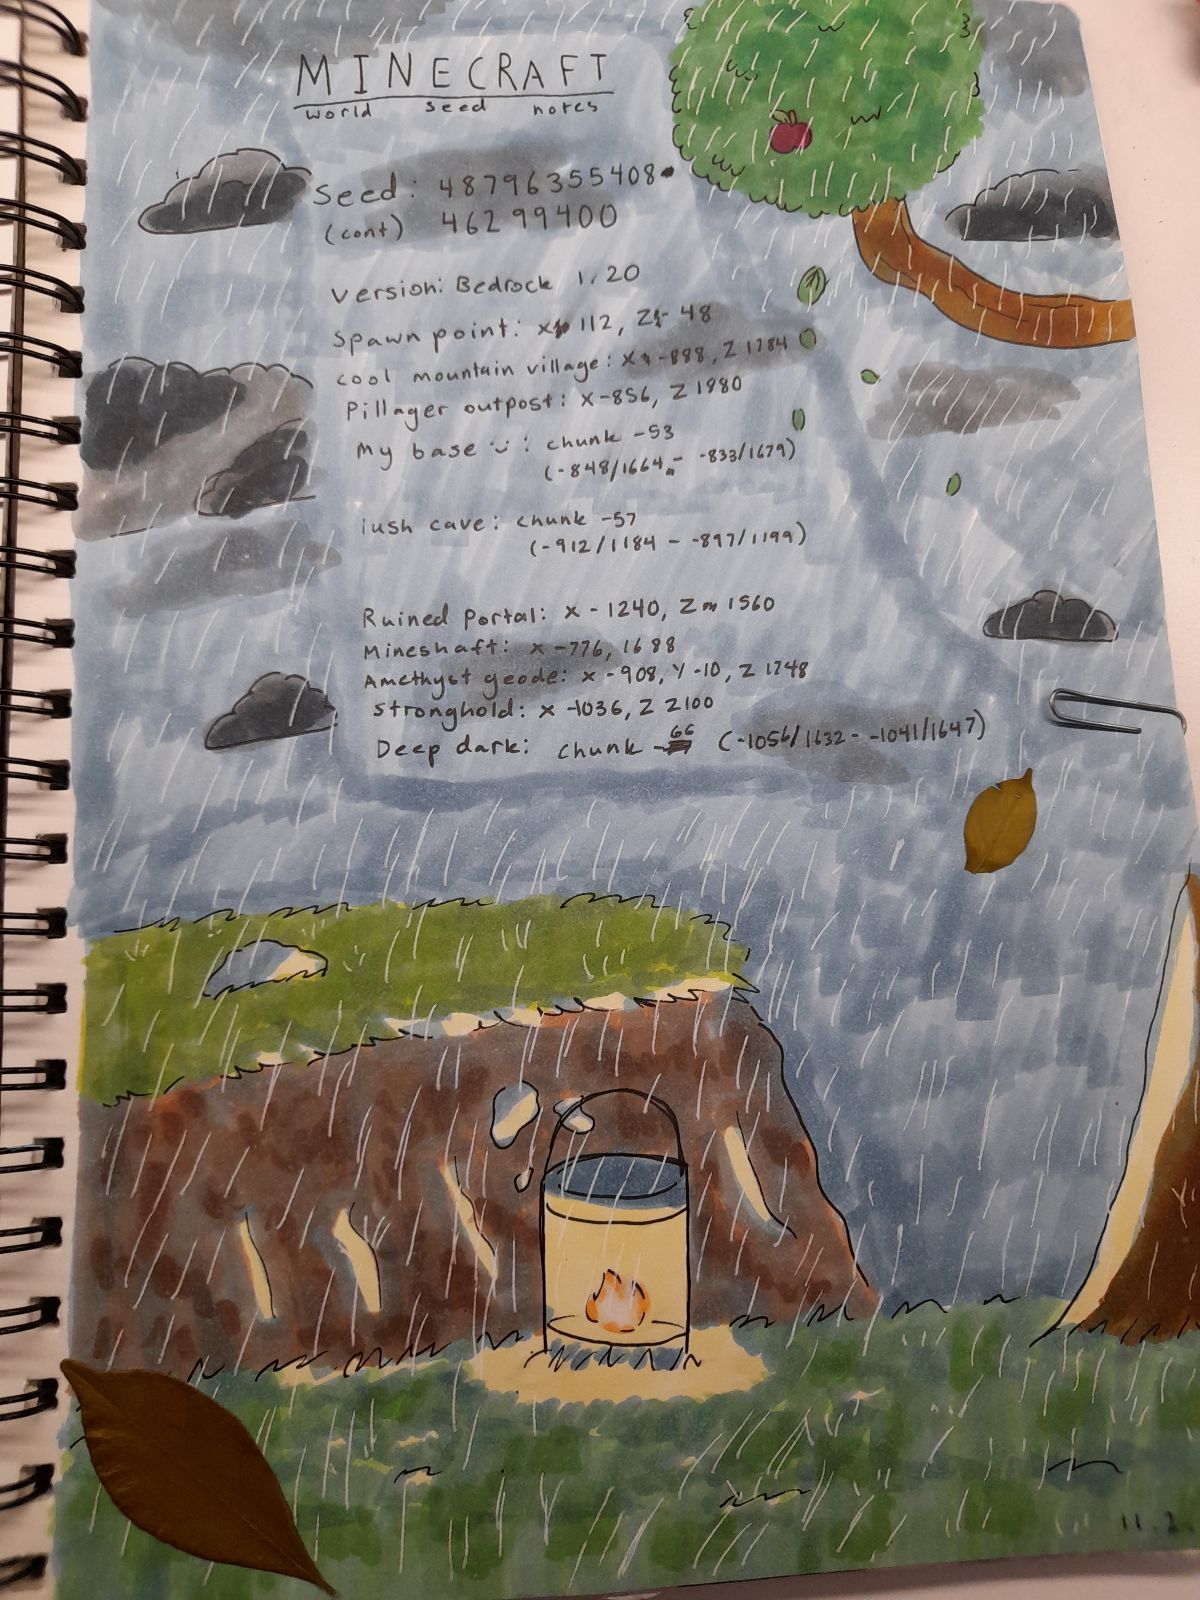 MINECRAFT
world seed notes
Seed: 48796355408
(cont) 46299400
Version: Bedrock 1.20
Spawn point: X 112, Z - 48
cool mountain village: X -888, Z 1784
Pillager outpost: X-856, Z 1880
My base :): chunk -53
(-848/1664 - -833/1679)
lush cave: chunk -57
(-912/1184 - -897/1199)
Ruined Portal: X -1240, Z 1560
Mineshaft: X -776, 1688
Amethyst geode: X -908, Y -10, Z 1748
Stronghold: X -1036, Z 2100
Deep dark: chunk -66 (-1056/1632 - -1041/1647)